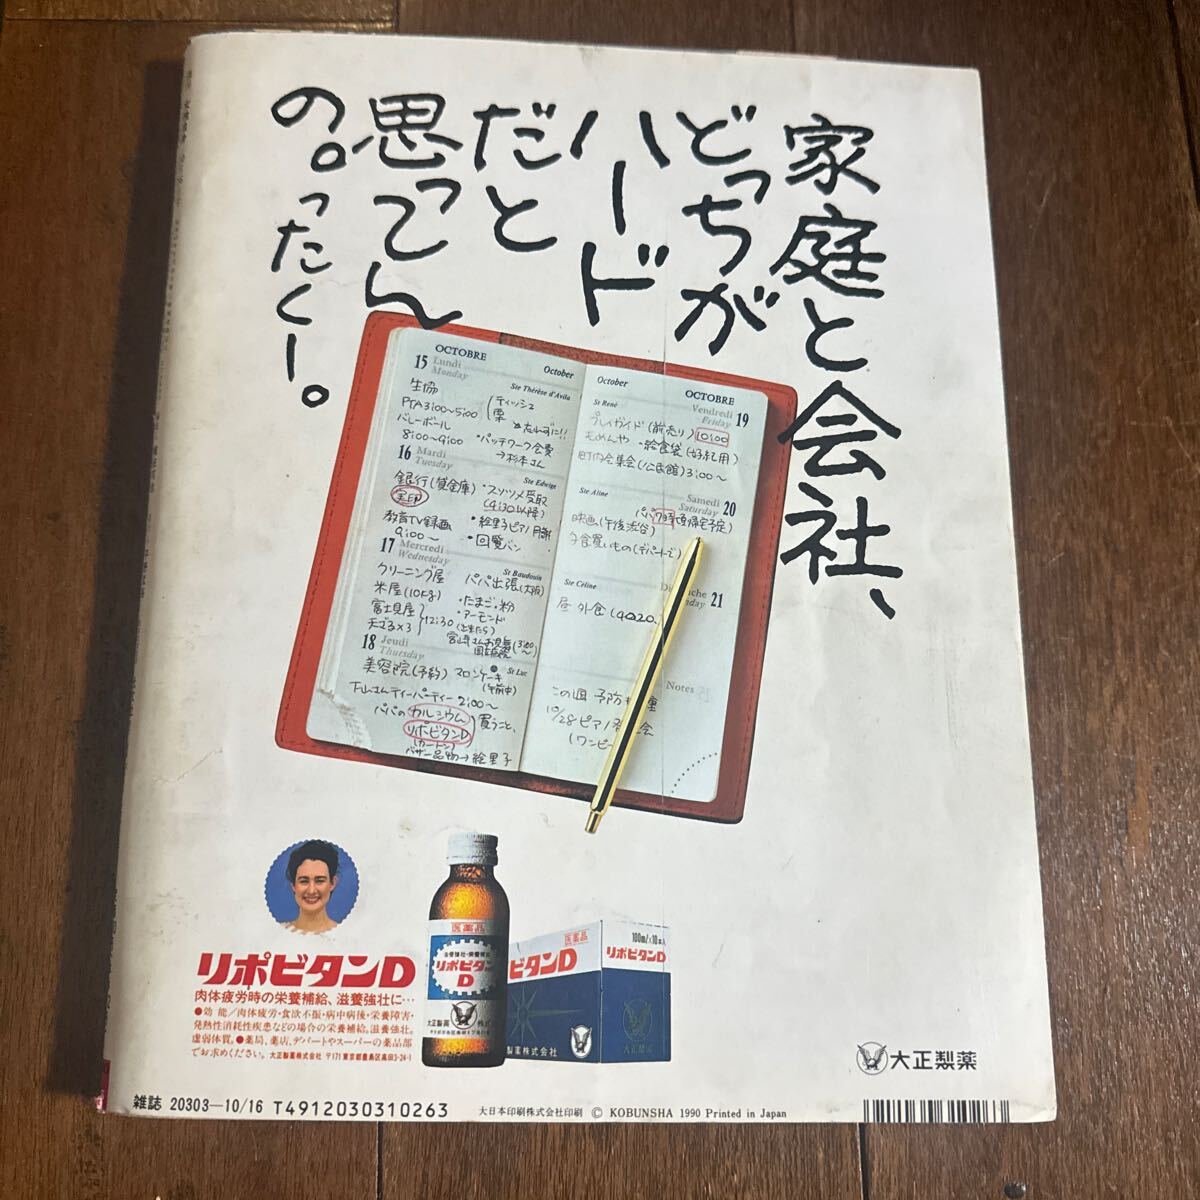 家庭と会社、
どっちが
ハード
だと
思ってん
の。ったくー。
OCTOBRE
October
15 Lundi
Monday
Ste Thérèse d'Avila
生協
PTA3:00〜5:00
バレーボール
8:00〜9:00
ティッシュ
栗
・パッチワーク会費
→杉本さん
16 Mardi
Tuesday
Ste Edwige
銀行(貸金庫)
実印
教育TV録画
9:00〜
・スーツメ受取
(4:30以降)
・絵里子ピアノ月謝
・回覧バン
17 Mercredi
Wednesday
St Baudouin
クリーニング屋
米屋(10kg)
富士見屋
天ざる×3
12:30
パパ出張(大阪)
・たまご・粉
・アーモンド
18 Jeudi
Thursday
St Luc
美容院(予約)
マロンケーキ
(午前中)
下山さんティーパーティー 2:00〜
パパのカルシウム
リポビタンD
(カートン)
買うこと、
バザー品物→絵里子
October
OCTOBRE
Vendredi 19
Friday
St René
プレイガイド(前売り) 10:00
もめんや・給食袋(
町内会集会(公民館)3:00〜
Samedi 20
Saturday
Ste Aline
パパ7時頃帰宅予定)
映画(午後渋谷)
夕食買いもの(デパートで)
21
Ste Céline
昼 外食(
Notes
この週 予防
10/28ピアノ
(ワンピー
リポビタンD
肉体疲労時の栄養補給、滋養強壮に…
●効能/肉体疲労・食欲不振・病中病後・栄養障害・
発熱性消耗性疾患などの場合の栄養補給。滋養強壮。
虚弱体質。●薬局、薬店、デパートやスーパーの薬品部
でお求めください。大正製薬株式会社 〒171 東京都豊島区高田3-24-1
医薬品
リポビタン
D
大正製薬
医薬品
ビタンD
製薬株式会社
100ml×10本入
リポビタンD
大正製薬
雑誌 20303—10/16 T4912030310263
大日本印刷株式会社印刷 © KOBUNSHA 1990 Printed in Japan